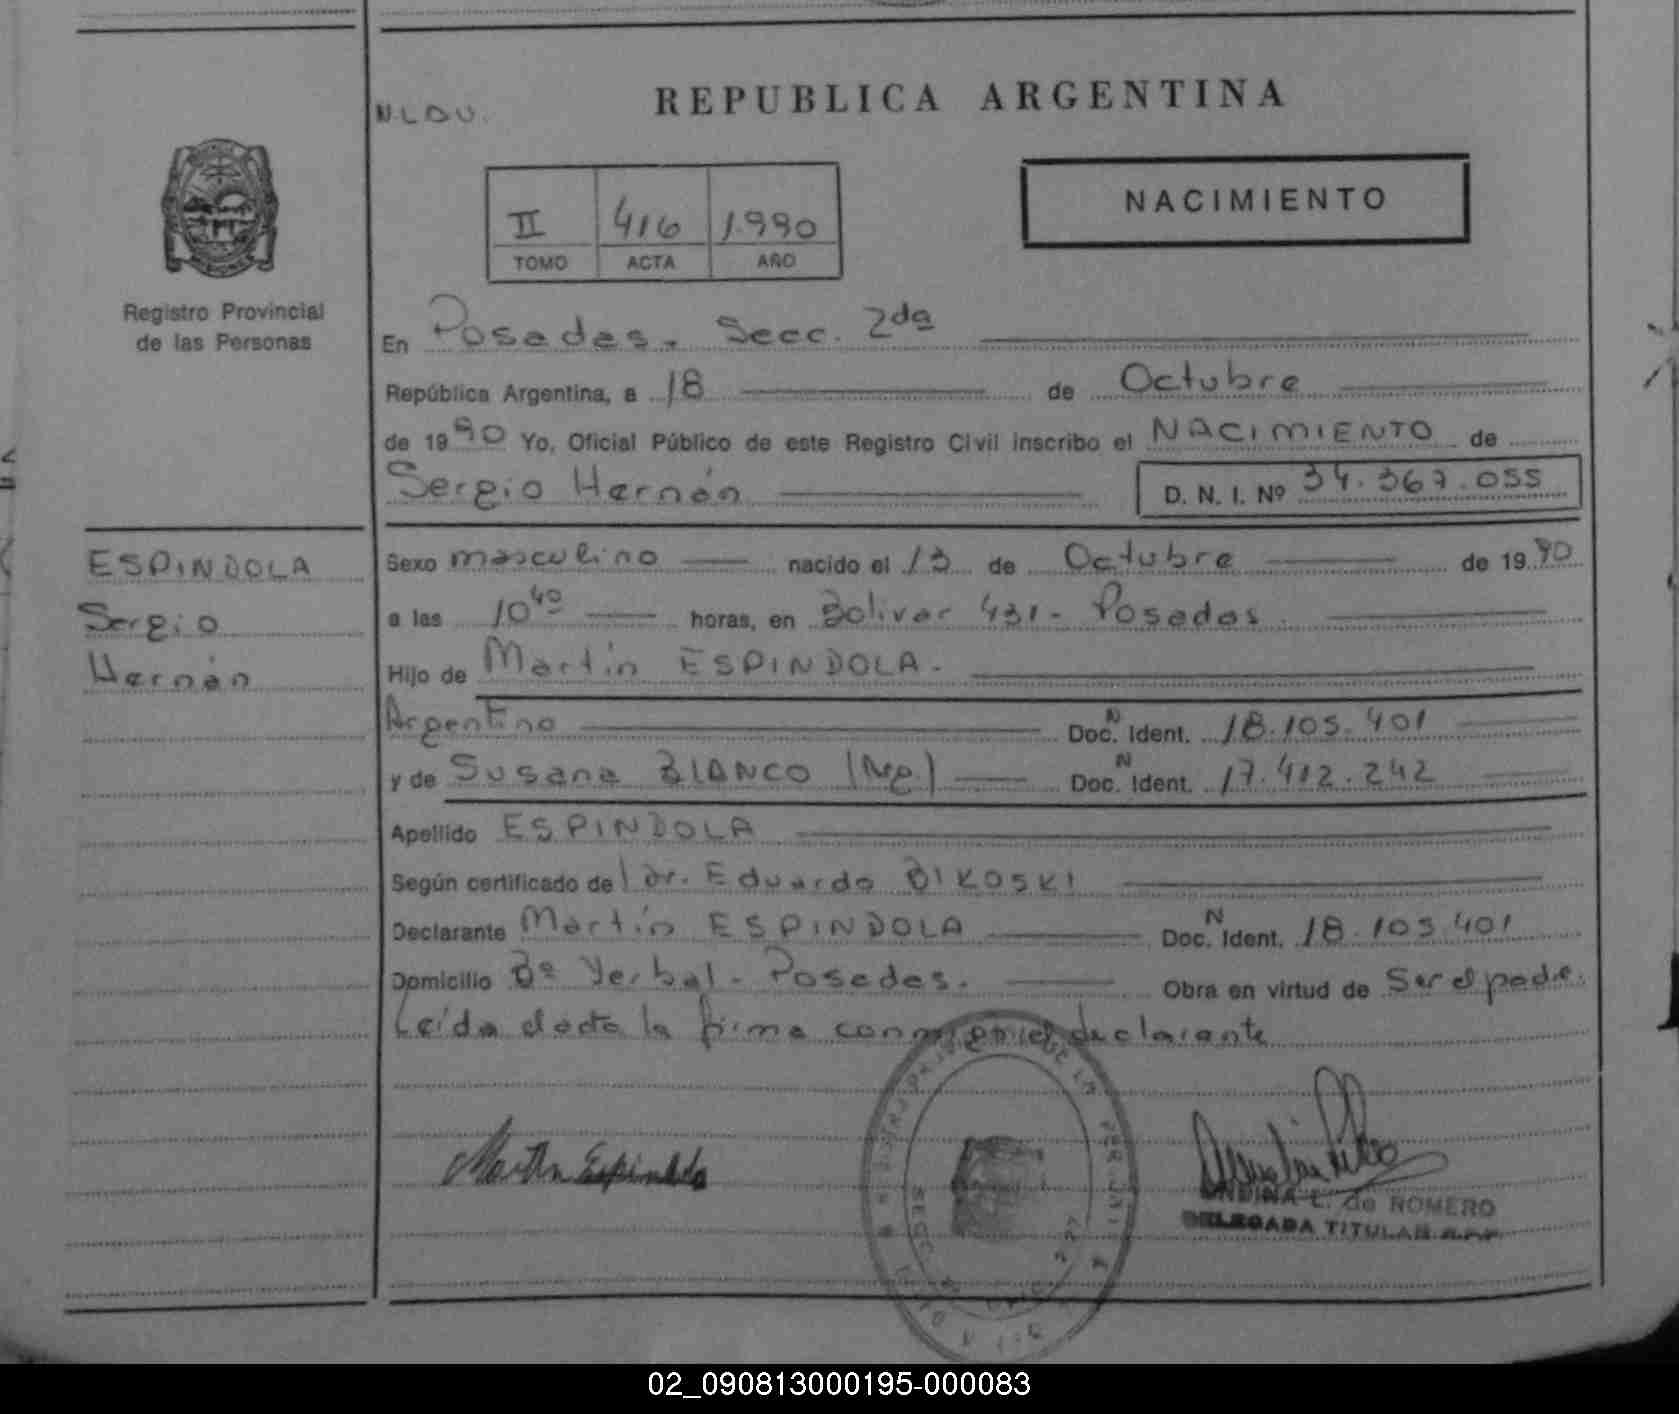 N.L.D.U.
REPUBLICA ARGENTINA
II 416 1.990
TOMO ACTA AÑO
NACIMIENTO
Registro Provincial
de las Personas
En Posadas. Secc. 2da
República Argentina, a 18 de Octubre
de 1990 Yo, Oficial Público de este Registro Civil inscribo el NACIMIENTO de
Sergio Hernán D. N. I. Nº 34.367.055
ESPINDOLA
Sergio
Hernán
Sexo masculino nacido el 13 de Octubre de 1990
a las 10 40 horas, en Bolivar 431 - Posadas
Hijo de Martín ESPINDOLA.
Argentino Doc. N Ident. 18.105.401
y de Susana BLANCO (Arg.) Doc. N Ident. 17.412.242
Apellido ESPINDOLA
Según certificado de l dr. Eduardo BIKOSKI
Declarante Martín ESPINDOLA Doc. N Ident. 18.105.401
Domicilio Bº Yerbal - Posadas. Obra en virtud de Ser el padre.
Leída el acta la firma conmigo el declarante
Martin Espindola
L. de ROMERO
DELEGADA TITULAR
SECC
02_090813000195-000083